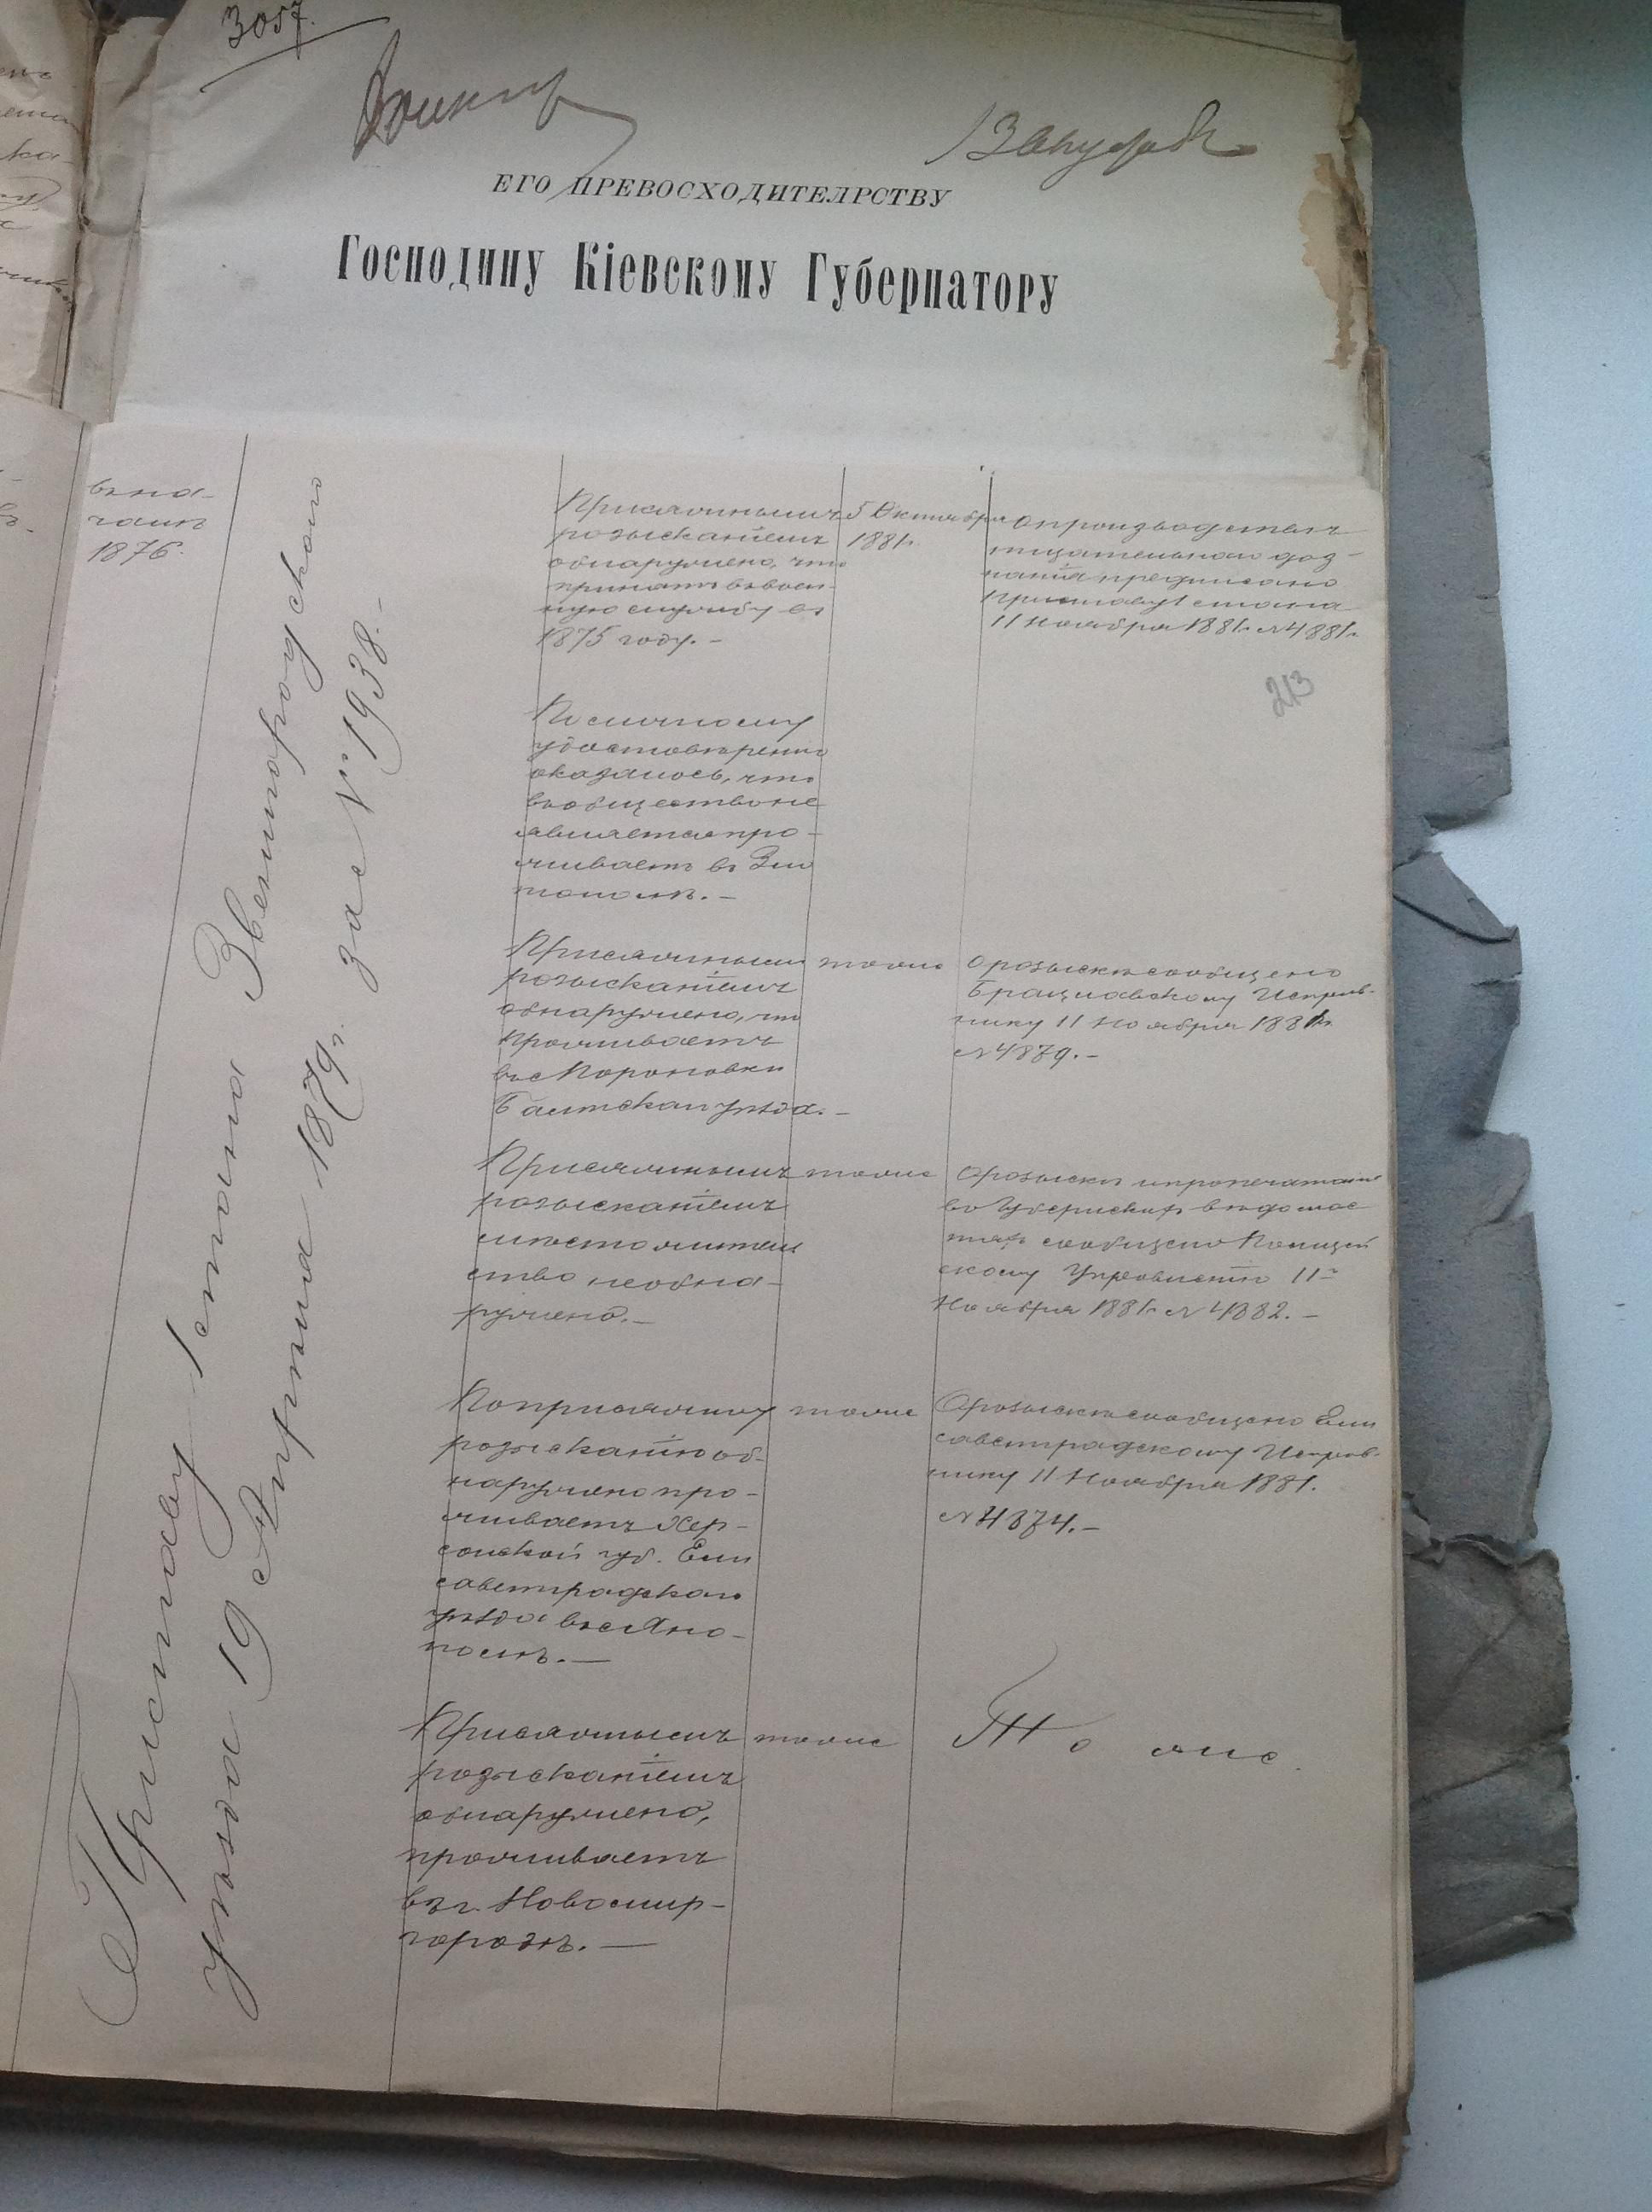 3057.
ЕГО ПРЕВОСХОДИТЕЛРСТВУ
Господину Кіевскому Губернатору
въ на-
чалѣ
1876.
Приставу 1 стана Звенигородскаго
уѣзда 19 Апрѣля 1879 г. за № 1938.-
Присяжнымъ
розысканіемъ
обнаружено, что
принятъ въ воен-
ную службу въ
1875 году.-
5 Октября
1881 г.
О производствѣ
тщательнаго доз-
нанія предписано
Приставу 1 стана
11 Ноября 1881 г. № 4881.
213
По личному
удостовѣренію
оказалось, что
въ обществѣ не
является про-
живаетъ въ Зла
тополѣ.-
Присяжнымъ
розысканіемъ
обнаружено, что
проживаетъ
въ с
Балтскаго уѣзда.-
тоже
О розыскѣ сообщено
Брацлавскому Исправ-
нику 11 Ноября 1881 г.
№ 4879.-
Присяжнымъ
розысканіемъ
мѣсто житель
ство необна-
ружено.-
тоже
О розыскѣ и пропечатаніи
въ Губернскихъ вѣдомос
тяхъ сообщено Полицей
скому Управленію 11го
Ноября 1881 г. № 4882.-
По присяжному
розысканію об-
наружено про-
живаетъ Хер-
сонской губ. Ели
саветградскаго
уѣзда въ с
тоже
О розыскѣ сообщено Ели
саветградскому Исправ-
нику 11 Ноября 1881.
№ 4874.-
Присяжнымъ
розысканіемъ
обнаружено,
проживаетъ
въ г. Новомир-
городѣ.-
тоже
Тоже